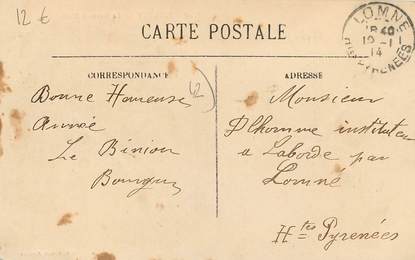 12 €
CARTE POSTALE
LOMNE
18 40
10 -1
14
HTES PYRENEES
CORRESPONDANCE
ADRESSE
12
Bonne Heureuse
Année
Le Binion
Monsieur
Dlhomme instituteur
a Laborde par
Lomné
Htes Pyrenées